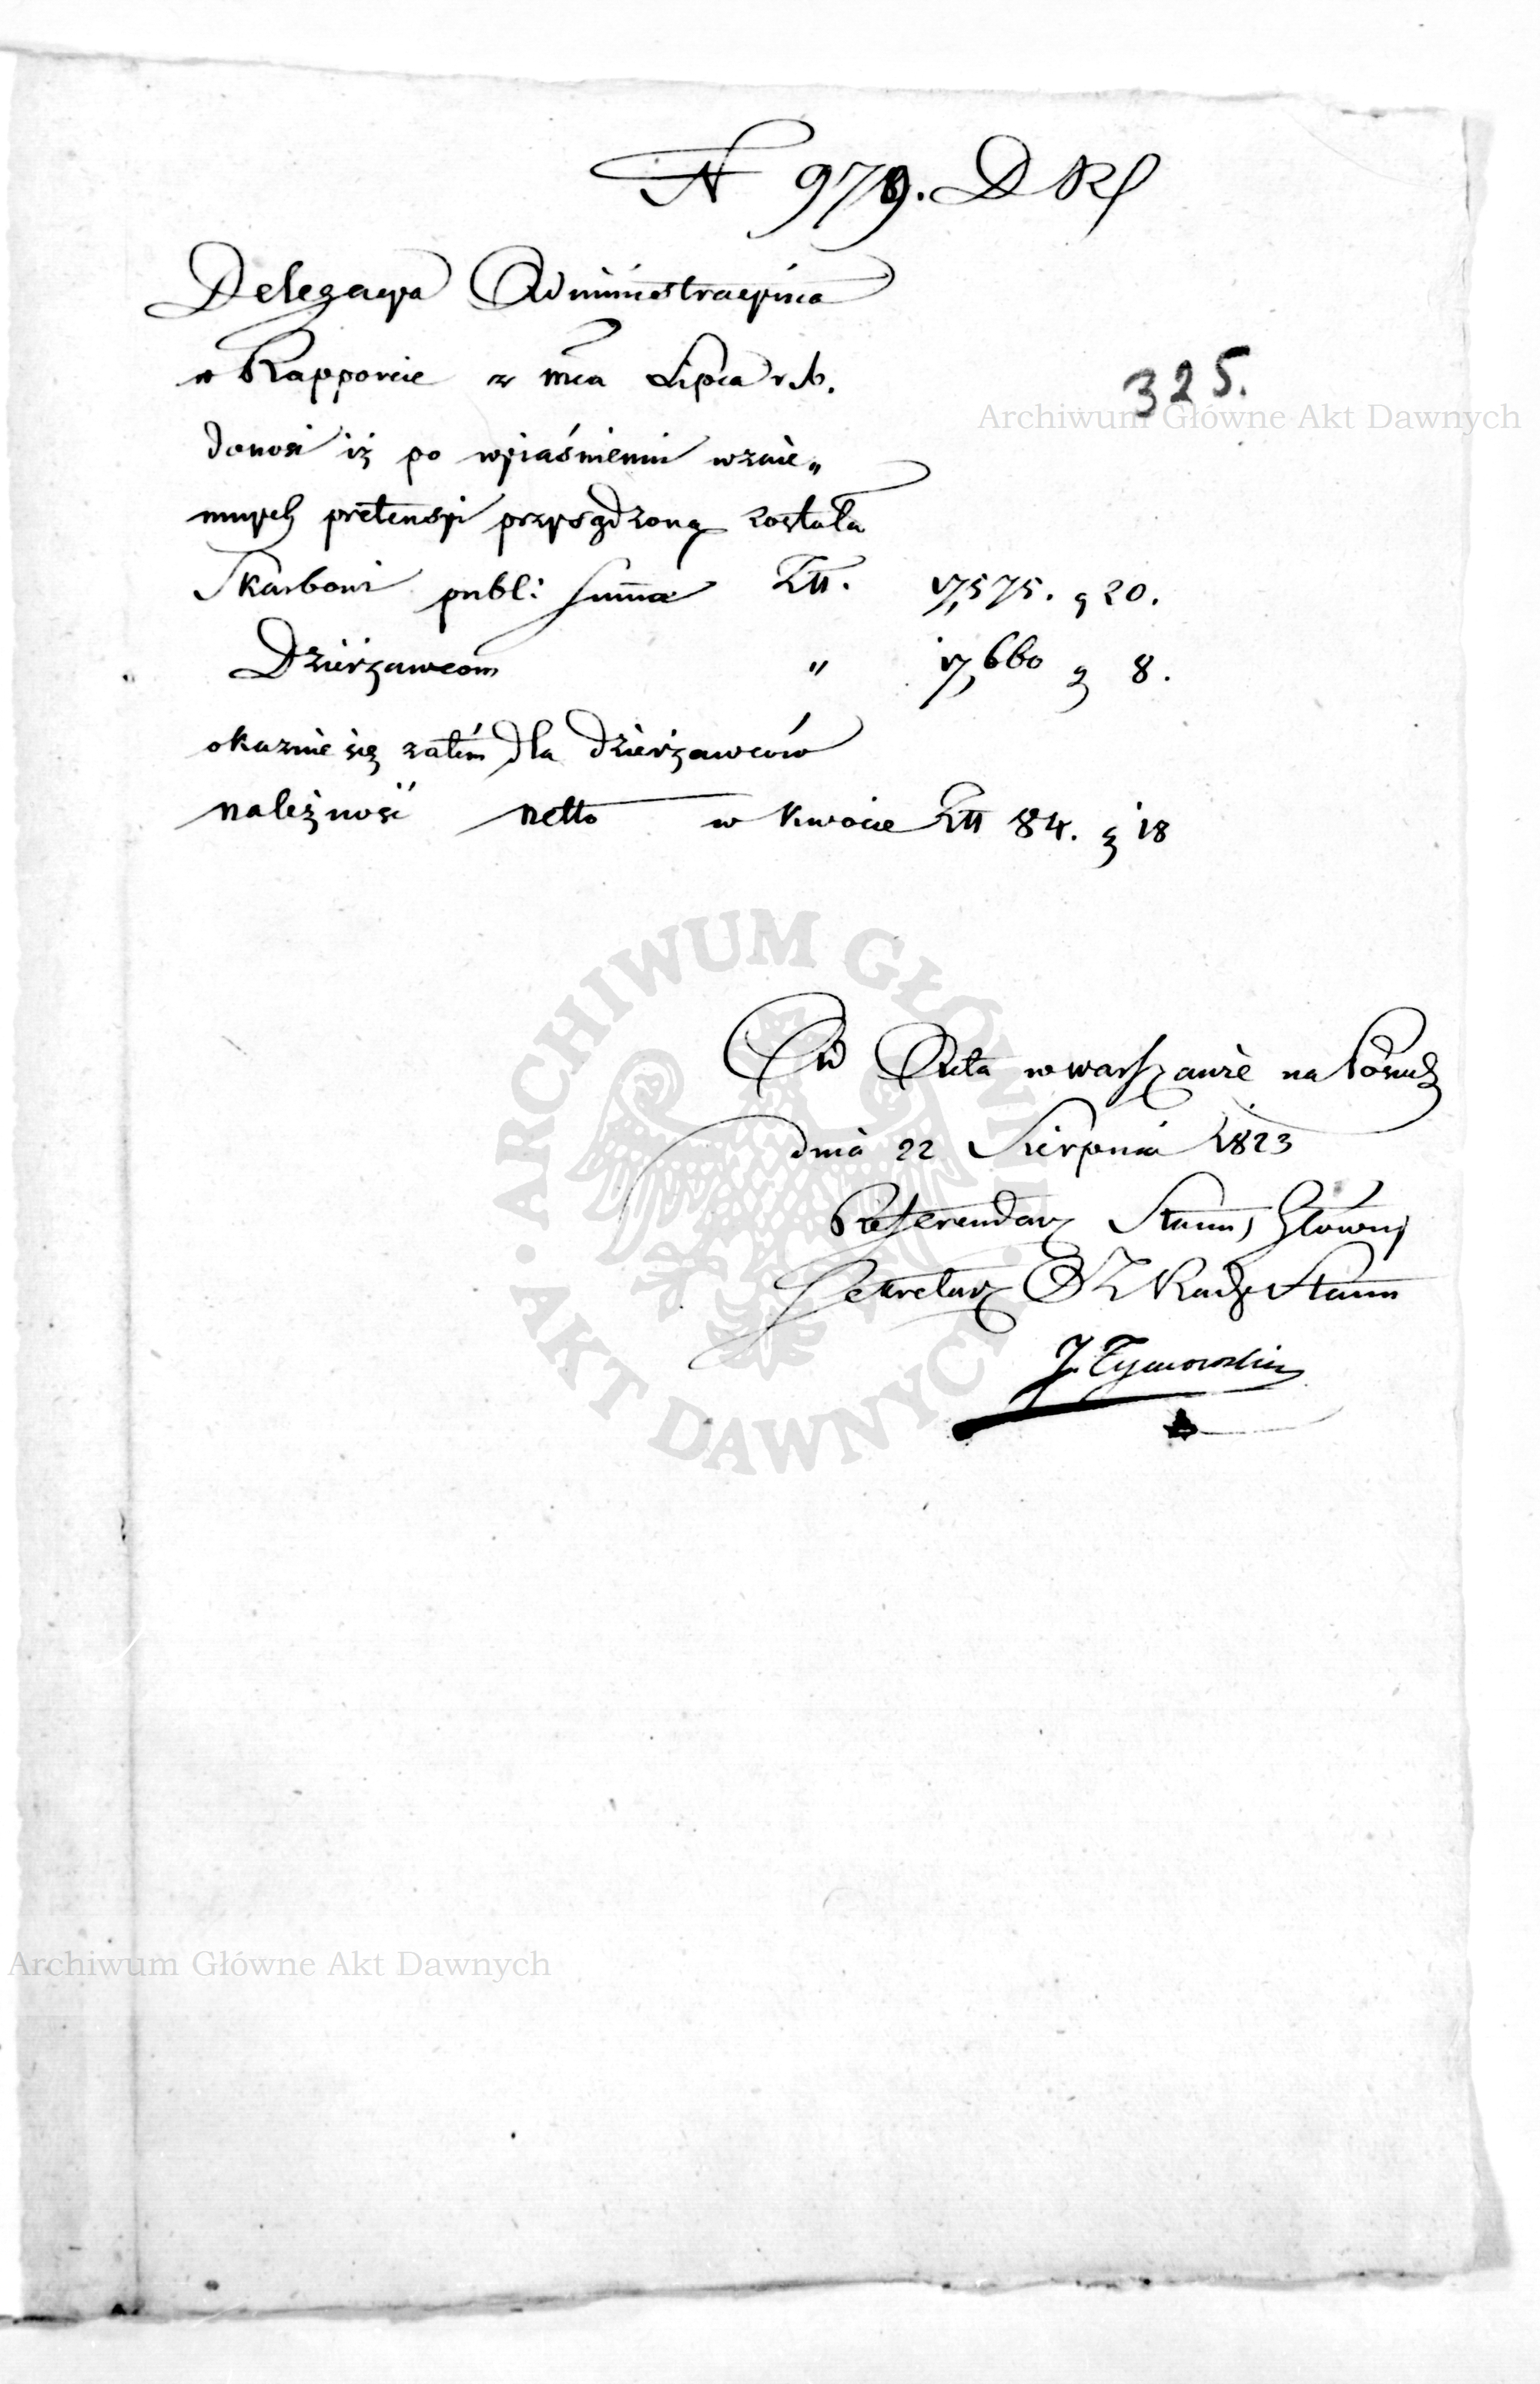 N 979. D Rl
Delegacya Administracyina
w Rapporcie z mca Lipca r. b.
325.
Archiwum Główne Akt Dawnych
donosi iż po wyiaśnieniu wzaie„
mnych pretensyi przysądzoną została
Skarbowi publ: summa Złl. 17,575. g 20.
Dzierżawcom " 17,660 g 8.
okazuie się zatém dla dzierżawców
należność netto w kwocie Złl 84. g 18
ARCHIWUM GŁÓWNE · AKT DAWNYCH ·
Dź Acta w Warszawie na
dnia 22 Sierpnia 1823
Referendarz Stanu, Główny
Sekretarz Rady Stanu
J. Tymowski
Archiwum Główne Akt Dawnych